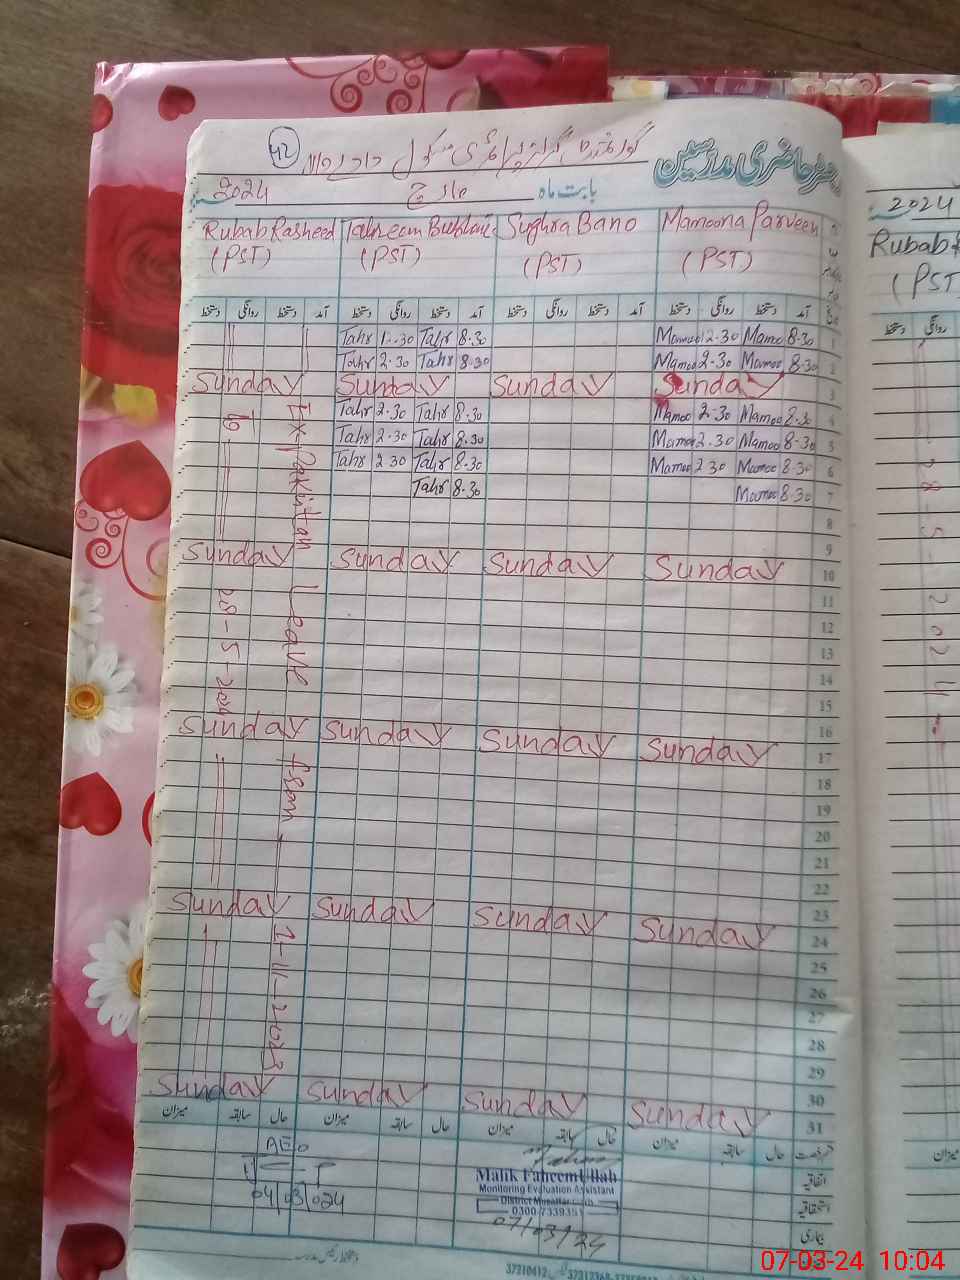 42
رجسٹر حاضری مدرسین
2024 مارچ بابت ماہ
Rubab Rasheed Tahreem Bukhari Sughra Bano Mamoona Parveen
(PST) (PST) (PST) (PST)
دستخط روانگی دستخط آمد دستخط روانگی دستخط آمد دستخط روانگی دستخط آمد دستخط روانگی دستخط آمد
Tahr 12.30 Tahr 8.30 Mamoo 12.30 Mamoo 8.30 1
Tahr 2.30 Tahr 8.30 Mamoo 2.30 Mamoo 8.30 2
Sunday Sunday Sunday Sunday 3
Tahr 2.30 Tahr 8.30 Mamoo 2.30 Mamoo 8.30 4
Tahr 2.30 Tahr 8.30 Mamoo 2.30 Mamoo 8.30 5
Tahr 2 30 Tahr 8.30 Mamoo 2 30 Mamoo 8.30 6
Tahr 8.30 Mamoo 8.30 7
8
9
Sunday Sunday Sunday Sunday 10
11
12
13
14
15
16
Sunday Sunday Sunday Sunday 17
18
19
20
21
22
23
Sunday Sunday Sunday Sunday 24
25
26
27
28
29
30
Sunday Sunday Sunday Sunday 31
Ex-Pakistan Leave from 2-11-2023
to 28-5-2024
میزان سابقہ حال میزان سابقہ حال میزان سابقہ حال میزان سابقہ حال
اتفاقیہ
استحقاقیہ
بیماری
AEO
04/03/024
Malik Faheem Ullah
Monitoring Evaluation Assistant
District Muzaffargarh
0300-7339351
07/03/24
37210412
2024
Rubab
(PST
دستخط روانگی
28-5-2024
میزان
07-03-24 10:04